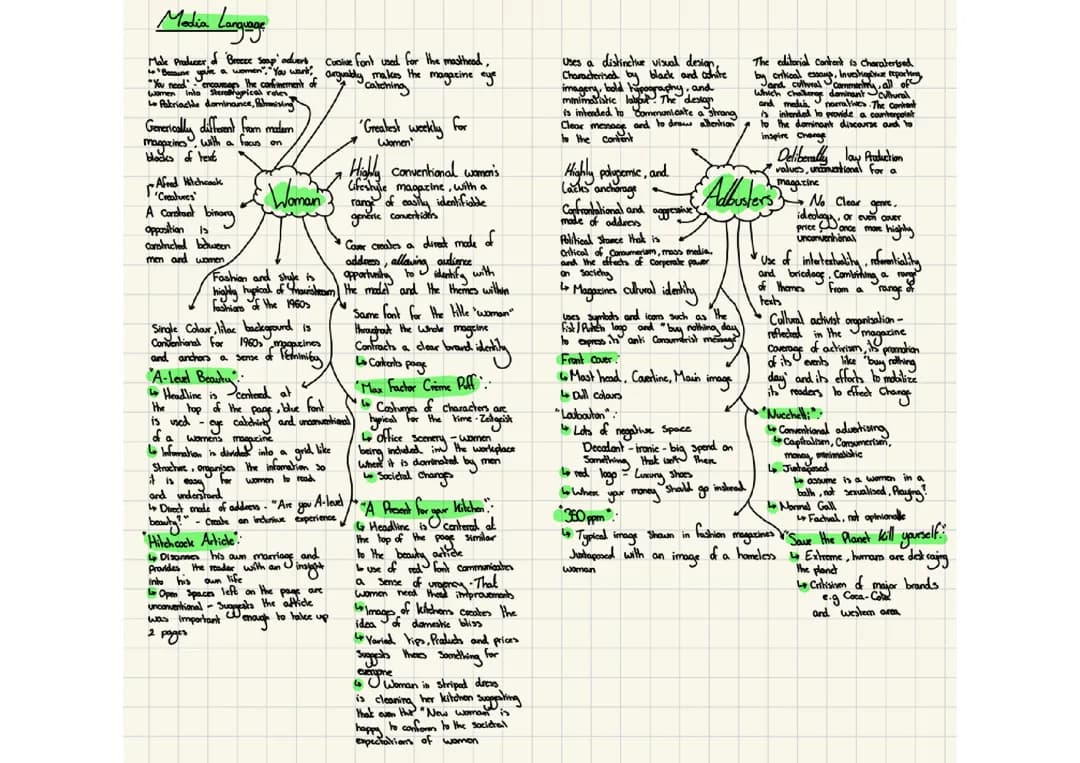 Media Language
Male Producer of 'Breeze Soap' advert
↳ "Because you're a women", "You want",
"You need" - encourages the confinement of
women into stereotypical roles
↳ Patriachle dominance, Patronising
Cursive font used for the masthead,
arguably makes the magazine eye
catching
Generically different from modern
magazines, with a focus on
blocks of text
"Greatest weekly for
Women"
Woman
Alfred Hitchcock
'Creatures'
A Constant binary
opposition is
constructed between
men and women
Highly conventional women's
lifestyle magazine, with a
range of easily identifiable
generic conventions
Cover creates a direct mode of
address, allowing audience
opportunity to identify with
the model and the themes within
Fashion and style is
highly typical of mainstream
fashions of the 1960s
Same font for the title "woman"
throughout the whole magazine
Contracts a clear brand identity
↳ Contents page
Single Colour, lilac background is
Conventional for 1960s magazines
and anchors a sense of femininity
"A-level Beauty":
↳ Headline is centered at
the top of the page, blue font
is used - eye catching and unconventional
of a womens magazine
↳ Information is divided into a grid like
Structure, organises the information so
it is easy for women to read
and understand
↳ Direct mode of address - "Are you A-level
beauty?" - Create an inclusive experience
"Hitchcock Article":
↳ Discusses his own marriage and
Provides the reader with an insight
into his own life
↳ Open Spaces left on the page are
unconventional - Suggests the article
was important enough to take up
2 pages
"Max Factor Crème Puff":
↳ Costumes of characters are
typical for the time - Zeitgeist
↳ Office Scenery - women
being included in the workplace
where it is dominated by men
↳ Societal Changes
"A Present for your Kitchen":
↳ Headline is centered at
the top of the page similar
to the beauty article
↳ use of red font communicates
a sense of urgency - That
women need these improvements
↳ Images of kitchens creates the
idea of domestic bliss
↳ Varied tips, Products and prices
Suggests theres something for
everyone
↳ Woman in striped dress
is cleaning her kitchen suggesting
that even the "New woman" is
happy to conform to the societal
expectations of women
Uses a distinctive visual design,
Characterised by black and white
imagery, bold typography, and
minimalistic layout. The design
is intended to communicate a strong
Clear message and to draw attention
to the content
The editorial Content is Charaterised
by critical essays, investigative reporting,
and cultural commentry, all of
which challenge dominant cultural
and media narratives. The content
is intended to provide a counterpoint
to the dominant discourse and to
inspire change
Highly polysemic, and
Lacks anchorage
Confrontational and aggressive
mode of address
Political Stance that is
critical of Consumerism, mass media,
and the effects of Corperate power
on Society
↳ Magazines cultural identity
uses symbols and icons such as the
to express its anti Consumerist message
Adbusters
Deliberally low Production
values, unconventional for a
magazine
No Clear genre,
ideology, or even cover
price once more highly
unconventional
Use of intertextuality, referentiality
and bricolage, Combining a range
of themes from a range of
texts
Cultural activist organisation -
reflected in the magazine
Coverage of activism, its promotion
of its events like "buy nothing
day" and its efforts to mobilize
its readers to effect Change
Front Cover:
↳ Mast head, Coverline, Main image
↳ Dull Colours
"Louboutin":
↳ Lots of negative Space
Decadent - ironic - big spend on
Something that isn't there
↳ red logo - Luxury Shoes
↳ Where your money Should go instead
"350 ppm":
↳ Typical image Shown in fashion magazines
Juxtaposed with an image of a homeless
woman
↳ Conventional advertising
↳ Capitalism, Consumerism,
money, minimalistic
↳ Juxtaposed
↳ assume is a women in a
bath, not sexualised, Praying?
↳ Factual, not opinionate
"Save the Planet kill yourself":
↳ Extreme, humans are destroying
the planet
↳ Critisism of major brands
e.g Coca-Cola
and western area